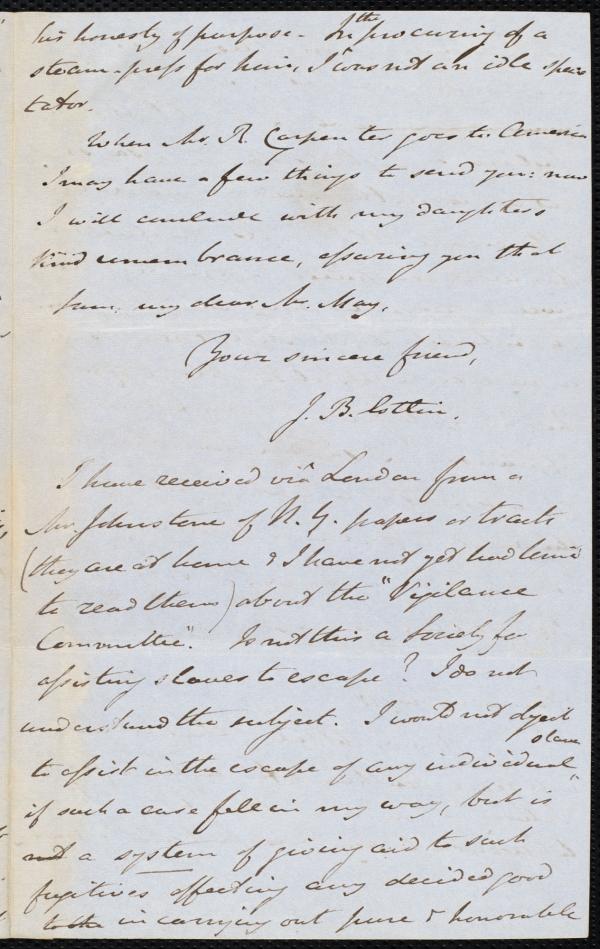 his honesty of purpose - In the procuring of a
steam-press for him, I was not an idle spec
tator.
When Mr. R. Carpenter goes to America
I may have a few things to send you: now
I will conclude with my daughters
kind remembrance, assuring you that
I am, my dear Mr. May,
Your sincere friend,
J. B. Estlin.
I have received viâ London from a
Mr. Johnstone of N. Y. papers or tracts
(they are at home & I have not yet had time
to read them) about the "Vigilance
Committee". Is not this a Society for
assisting slaves to escape? I do not
understand the subject. I would not object
to assist in the escape of any individual slave
if such a case fell in my way, but is
not a system of giving aid to such
fugitives effecting any decided good
in carrying out pure & honorable